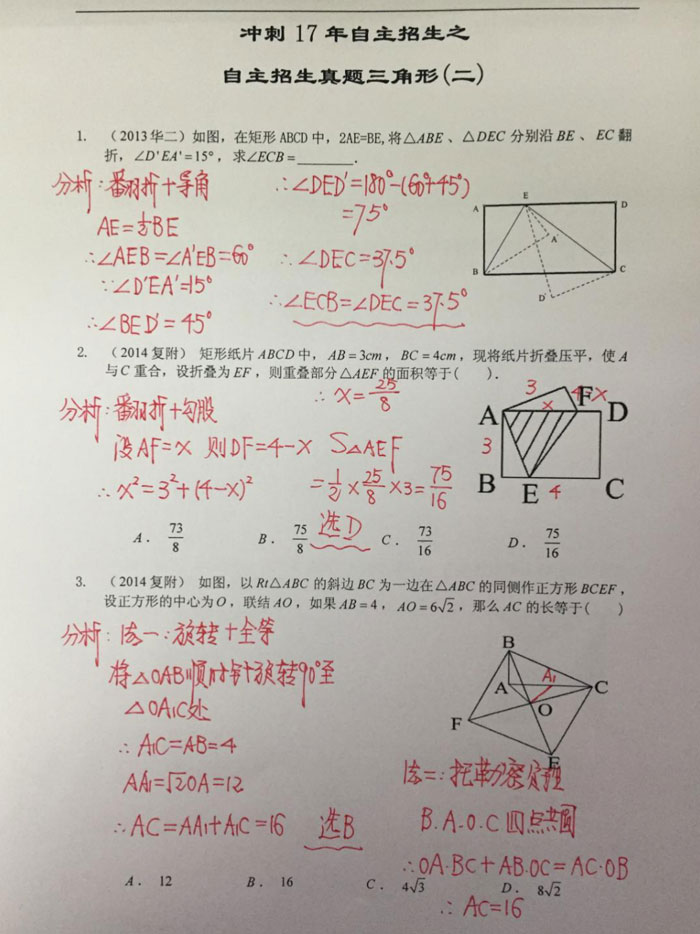 冲刺 17 年自主招生之
自主招生真题三角形(二)
1. （2013华二）如图，在矩形 ABCD 中，2AE=BE,将△ABE、△DEC 分别沿 BE、EC 翻
折，∠D'EA'=15°，求∠ECB=________.
分析:翻折+等角
AE=½BE
∴∠AEB=∠A'EB=60°
∵∠D'EA'=15°
∴∠BED'=45°
∴∠DED'=180°-(60°+45°)
=75°
∴∠DEC=37.5°
∴∠ECB=∠DEC=37.5°
A E D
A'
B C
D'
2. （2014复附） 矩形纸片 ABCD 中，AB=3cm，BC=4cm，现将纸片折叠压平，使 A
与 C 重合，设折叠为 EF，则重叠部分△AEF 的面积等于( ).
分析:翻折+勾股
设AF=x 则DF=4-x
∴x²=3²+(4-x)²
∴x=25/8
S△AEF
=1/2×25/8×3=75/16
选D
3 4-x
A x F D
3
B E 4 C
A. 73/8 B. 75/8 C. 73/16 D. 75/16
3. （2014复附） 如图，以 Rt△ABC 的斜边 BC 为一边在△ABC 的同侧作正方形 BCEF，
设正方形的中心为 O，联结 AO，如果 AB=4，AO=6√2，那么 AC 的长等于( )
分析:法一:旋转+全等
将△OAB顺时针旋转90°至
△OA₁C处
∴A₁C=AB=4
AA₁=√2OA=12
∴AC=AA₁+A₁C=16 选B
B
A A₁ C
O
F
E
法二:托勒密定理
B.A.O.C四点共圆
∴OA·BC+AB·OC=AC·OB
∴AC=16
A. 12 B. 16 C. 4√3 D. 8√2